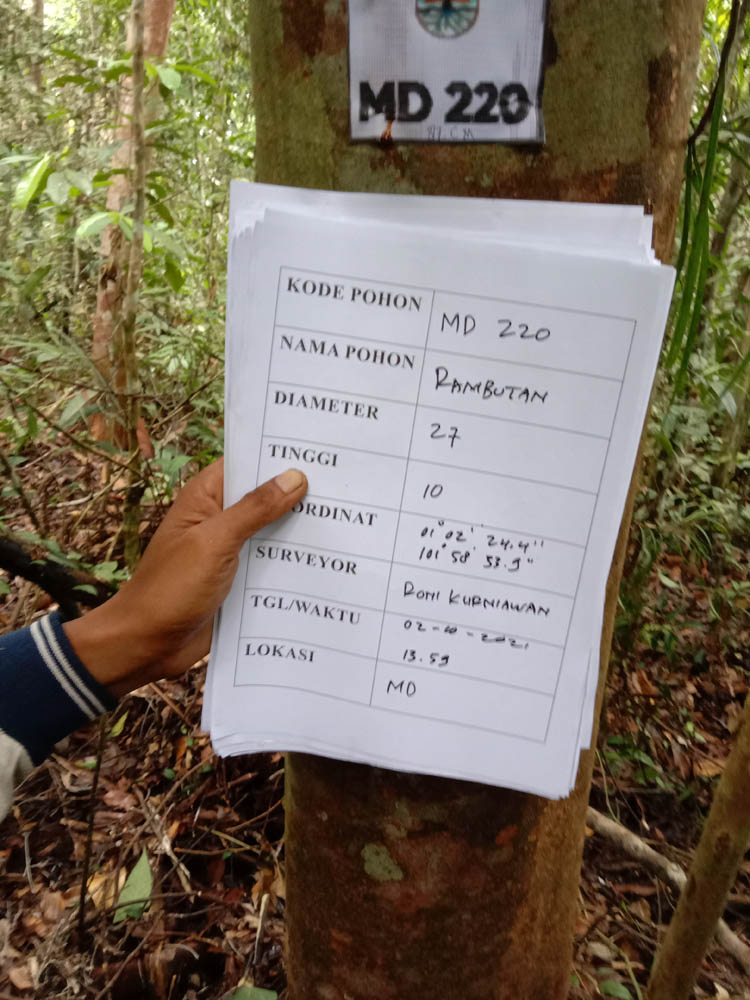 MD 220
KODE POHON MD 220
NAMA POHON RAMBUTAN
DIAMETER 27
TINGGI 10
ORDINAT 01° 02' 24.4"
101° 58' 53.9"
SURVEYOR RONI KURNIAWAN
TGL/WAKTU 02-10-2021
13.59
LOKASI MD